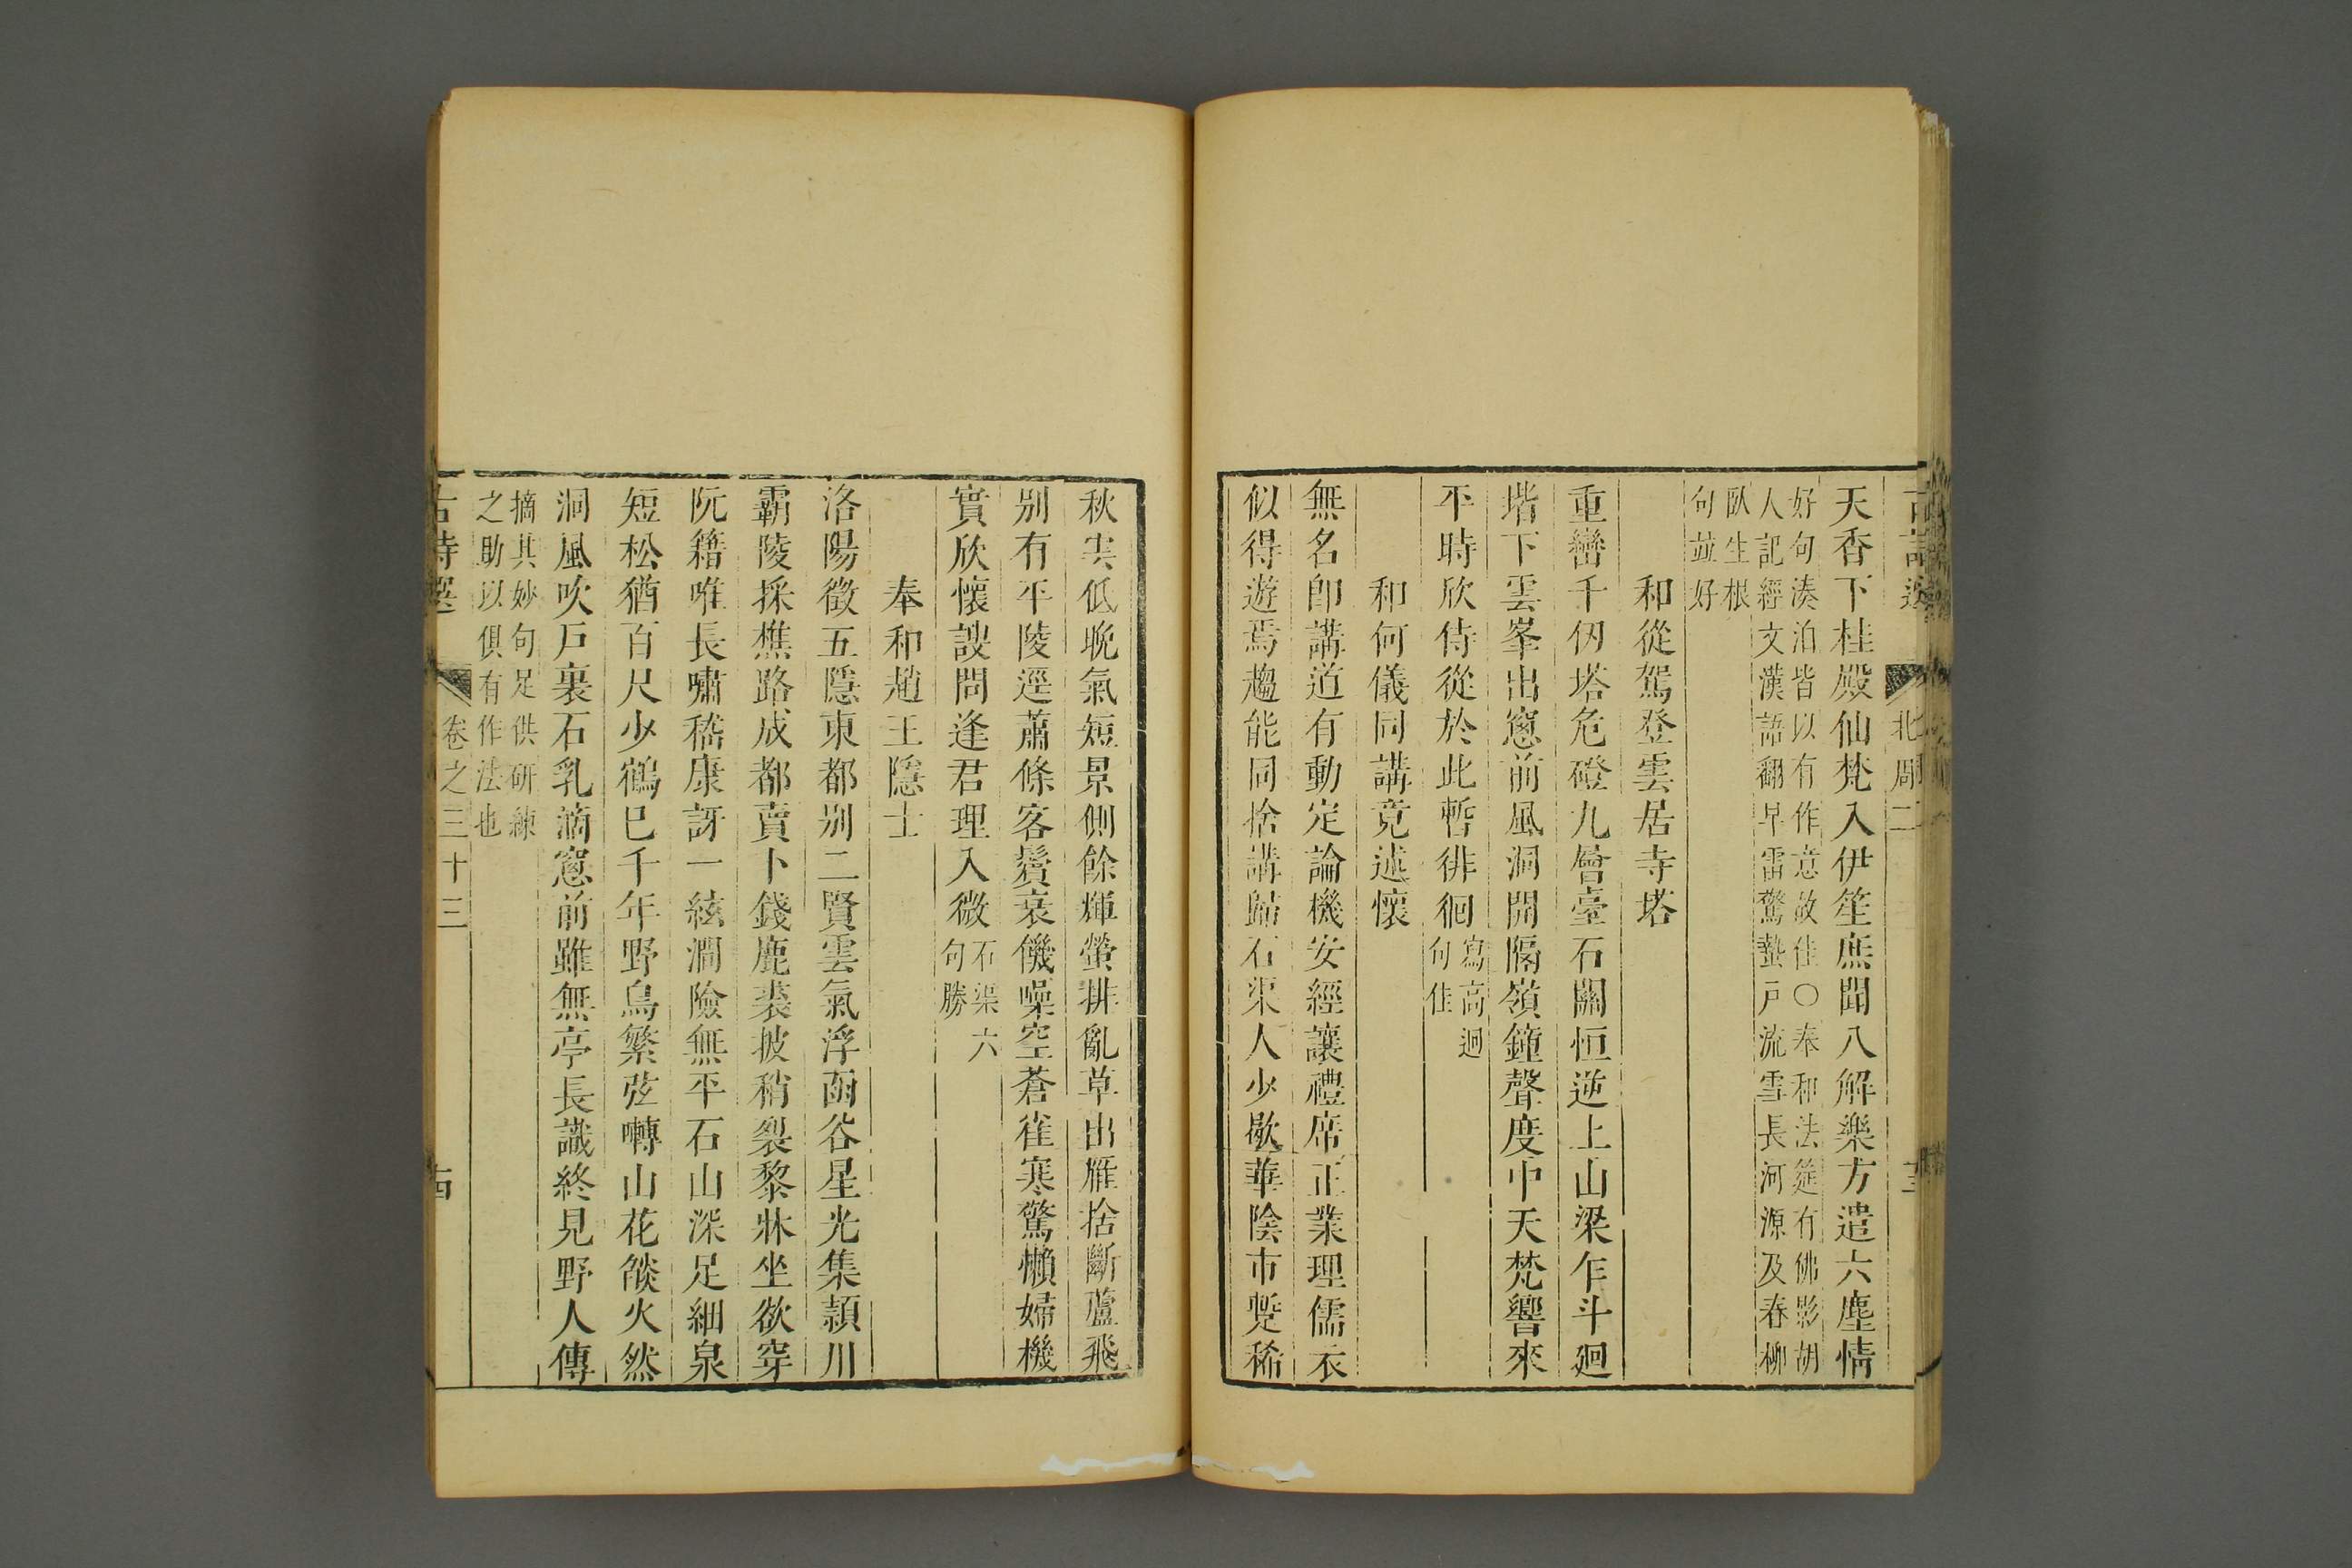 古詩選 北周二 十三
天香下桂殿仙梵入伊笙庶聞八解樂方遣六塵情
好句湊泊皆以有作意故佳○奉和法筵有佛影胡
人記經文漢語翻早雷驚蟄戶流雪長河源及春柳
臥生根
句並好
和從駕登雲居寺塔
重巒千仞塔危磴九層臺石關恒逆上山梁乍斗廻
堦下雲峯出窻前風洞開隔嶺鐘聲度中天梵響來
平時欣侍從於此暫徘徊
寫高迥
句佳
和何儀同講竟述懷
無名卽講道有動定論機安經讓禮席正業理儒衣
似得遊焉趨能同捨講歸石渠人少歇華陰市蹔稀
秋雲低晚氣短景側餘輝螢排亂草出雁捨斷蘆飛
别有平陵逕蕭條客鬢衰儀噪空蒼雀寒驚懶婦機
實欣懷謏問逢君理入微
石渠六
句勝
奉和趙王隱士
洛陽徵五隱東都别二賢雲氣浮函谷星光集潁川
霸陵採樵路成都賣卜錢鹿裘披稍裂黎牀坐欲穿
阮籍唯長嘯嵇康訝一絃澗險無平石山深足細泉
短松猶百尺少鶴已千年野鳥繁弦囀山花燄火然
洞風吹戸裏石乳滴窻前雖無亭長識終見野人傳
摘其妙句足供研練
之助以俱有作法也
古詩選 卷之三十三 十四